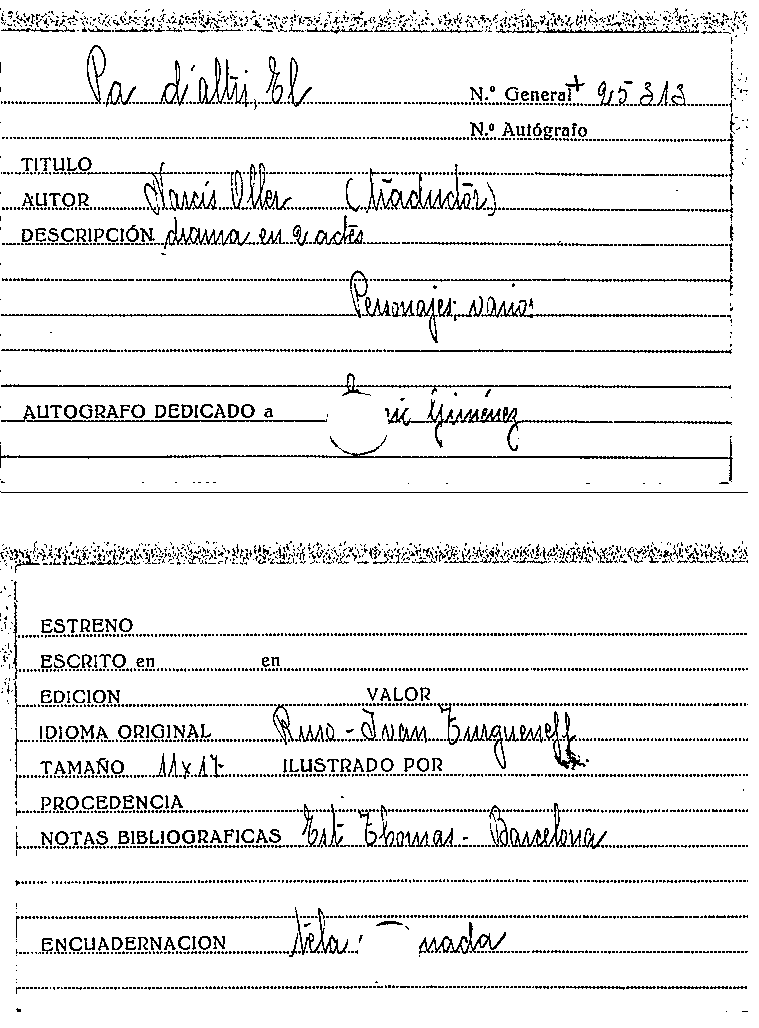 Pa d'altri, El
N.º General + 25313
N.º Autógrafo
TITULO
AUTOR Narcís Oller (traductor)
DESCRIPCIÓN drama en 2 actes
Personajes: varios
AUTOGRAFO DEDICADO a Giménez
ESTRENO
ESCRITO en en
EDICION VALOR
IDIOMA ORIGINAL Ruso - Ivan Turgueneff
TAMAÑO 11x17 ILUSTRADO POR
PROCEDENCIA
NOTAS BIBLIOGRAFICAS Est Thomas - Barcelona
ENCUADERNACION tela